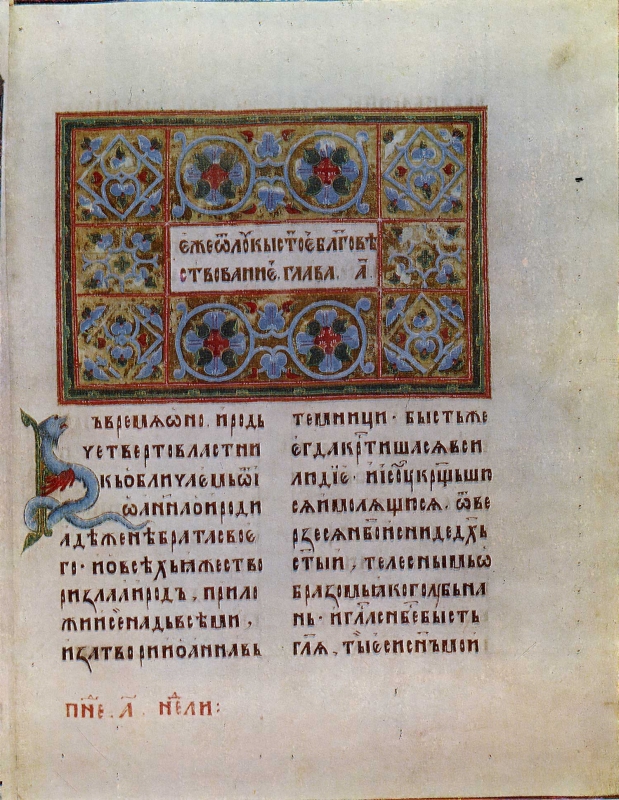 еже ѿ лꙋкы ст҃ое бл҃говѣ
ствование. глава. а҃
ъ времѧ ѡно. иродь
четвертовластни
кь обличаемь ѡ і
ѡанна о иродиа
адѣ женѣ брата свое
го. и о всѣхь ꙗже ство
ри ꙁла иродъ, прило
жи и се надь всѣми,
и ꙁатвори иоанна вь
темници. бысть же
егда кр҃тишасѧ вси
людїе. и іс҃ꙋ кр҃щьши
сѧ и молѧщисѧ. ѿве
рꙁесѧ нб҃о и сниде дх҃ь
ст҃ыи, телеснымь ѡ
браꙁомь ꙗко голꙋбь на
нь. и глас с нб҃се бысть
гл҃ѧ, ты еси сн҃ь мои
пн҃е. а҃. нд҃ели: